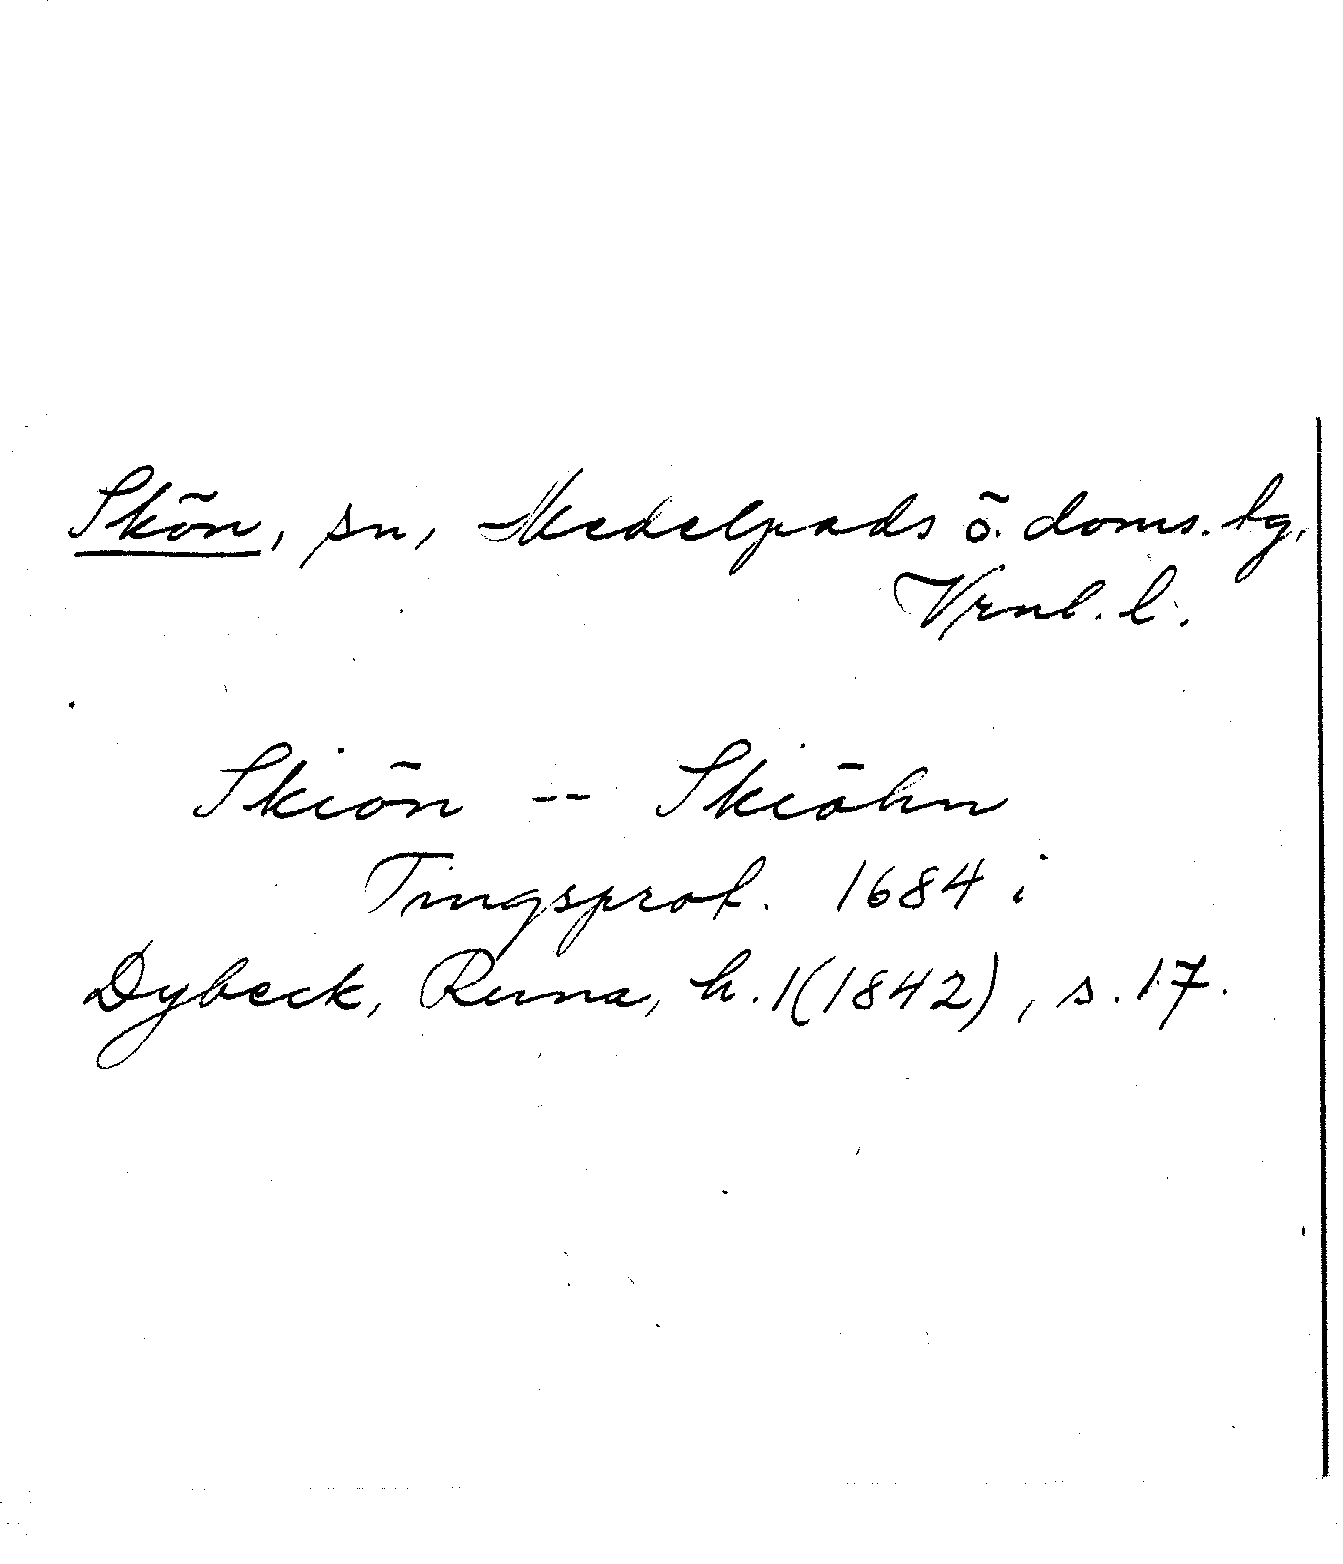 Skön, sn, Medelpads ö. doms. hg,
Vrnl. l.
Skiön -- Skiöhn
Tingsprot. 1684 i
Dybeck, Runa, h. 1(1842), s. 17.